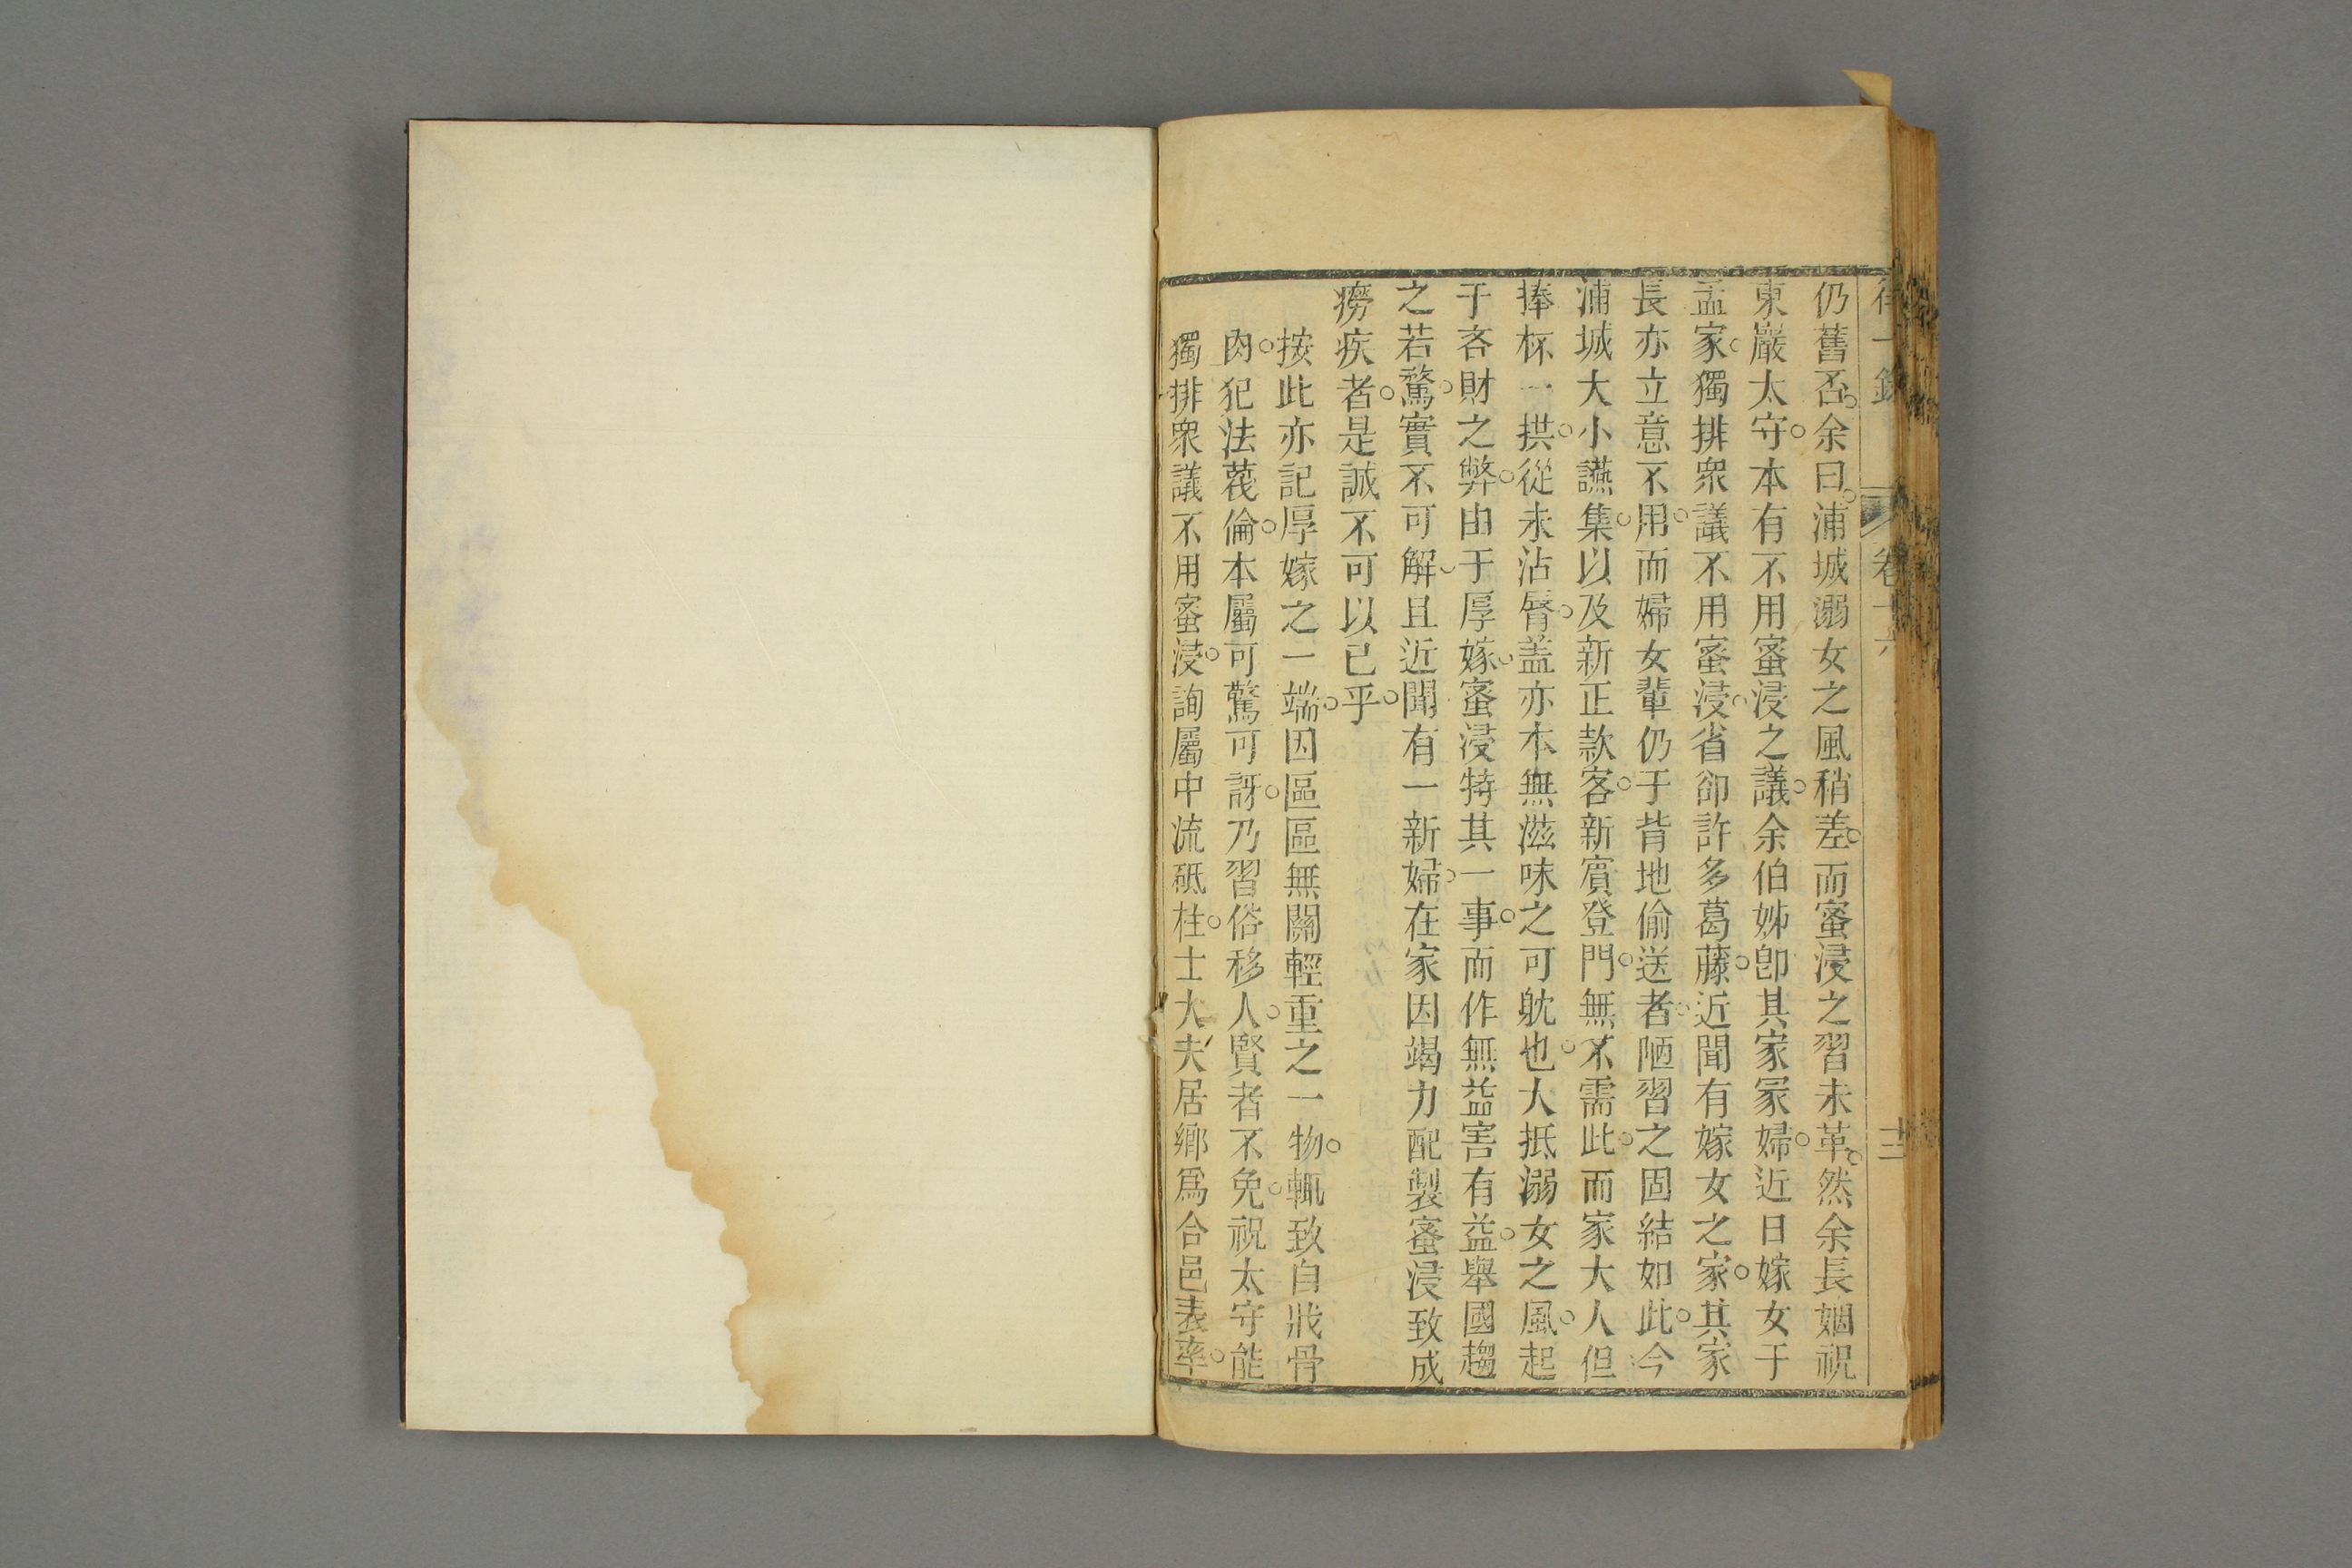 得一錄 卷十六 十三
仍舊否。余曰。浦城溺女之風稍差。而蜜浸之習未革。然余長姻祝
東巖太守。本有不用蜜浸之議。余伯姊卽其家冢婦。近日嫁女于
孟家。獨排衆議不用蜜浸。省卻許多葛藤。近聞有嫁女之家。其家
長亦立意不用。而婦女輩仍于背地偷送者。陋習之固結如此。今
浦城大小讌集。以及新正款客。新賓登門。無不需此。而家大人但
捧杯一拱。從未沾脣。盖亦本無滋味之可躭也。大抵溺女之風。起
于吝財之弊。由于厚嫁。蜜浸特其一事。而作無益害有益。舉國趨
之若騖。實不可解。且近聞有一新婦。在家因竭力配製蜜浸致成
癆疾者。是誠不可以已乎。
按此亦記厚嫁之一端。因區區無關輕重之一物。輒致自戕骨
肉。犯法蔑倫。本屬可驚可訝。乃習俗移人。賢者不免。祝太守能
獨排衆議不用蜜浸。詢屬中流砥柱。士大夫居鄉爲合邑表率。